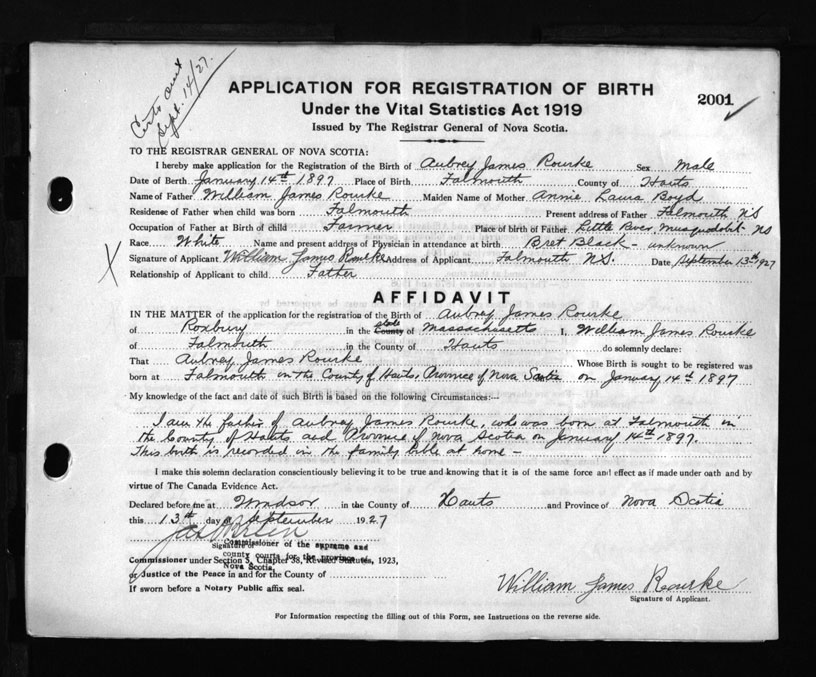 Certs out
Sept. 14/27.
APPLICATION FOR REGISTRATION OF BIRTH
Under the Vital Statistics Act 1919
2001
Issued by The Registrar General of Nova Scotia.
TO THE REGISTRAR GENERAL OF NOVA SCOTIA:
I hereby make application for the Registration of the Birth of Aubrey James Rourke Sex Male
Date of Berth January 14th 1897 Place of Birth Falmouth County of Hants
Name of Father William James Rourke Maiden Name of Mother Annie Laura Boyd
Residense of Father when child was born Falmouth Present address of Father Falmouth NS
Occupation of Father at Birth of child Farmer Place of birth of Father Little River Musquodobit - NS
Race White Name and present address of Physician in attendance at birth Bret Black - unknown
Signature of Applicant William James Rourke Address of Applicant Falmouth N.S. Date September 13th 1927
Relationship of Applicant to child Father
AFFIDAVIT
IN THE MATTER of the application for the registration of the Birth of Aubrey James Rourke
of Roxbury in the County state of Massachusetts I, William James Rourke
of Falmouth in the County of Hants do solemnly declare:
That Aubrey James Rourke Whose Birth is sought to be registered was
born at Falmouth in the County of Hants, Province of Nova Scotia on January 14th 1897
My knowledge of the fact and date of such Birth is based on the following Circumstances:—
I am the father of Aubrey James Rourke, who was born at Falmouth in
the County of Hants and Province of Nova Scotia on January 14th 1897.
This birth is recorded in the family bible at home -
I make this solemn declaration conscientiously believing it to be true and knowing that it is of the same force and effect as if made under oath and by
virtue of The Canada Evidence Act.
Declared before me at Windsor in the County of Hants and Province of Nova Scotia
this 13th day of September 1927
Signature of
Commissioner of the supreme and
county courts for the province of
Nova Scotia,
Commissioner under Section 5, Chapter 38, Revised Statutes, 1923,
or Justice of the Peace in and for the County of
If sworn before a Notary Public affix seal.
William James Rourke
Signature of Applicant.
For Information respecting the filling out of this Form, see Instructions on the reverse side.